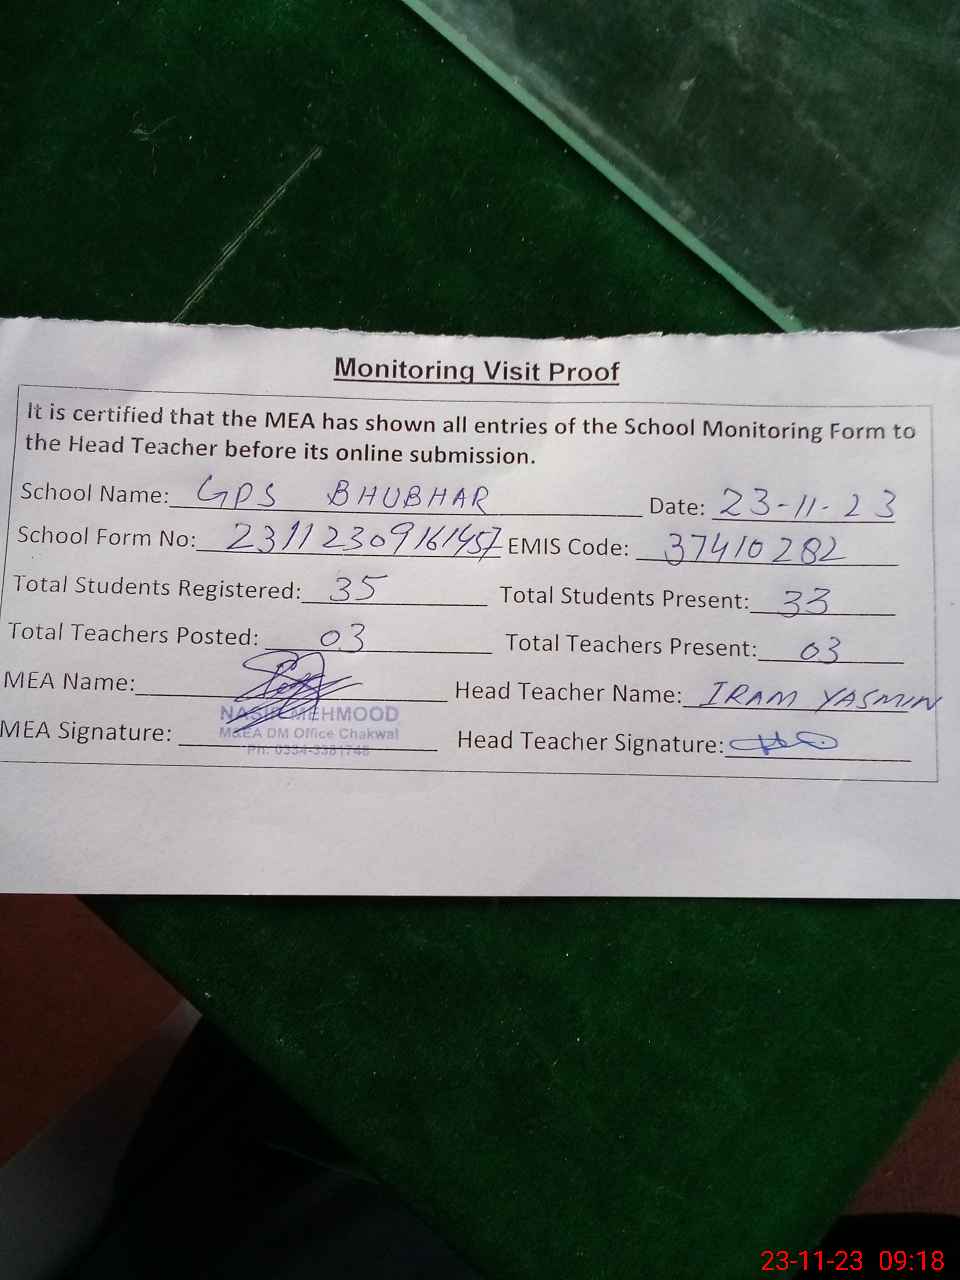 Monitoring Visit Proof
It is certified that the MEA has shown all entries of the School Monitoring Form to
the Head Teacher before its online submission.
School Name: GPS BHUBHAR Date: 23-11-23
School Form No: 23112309161457 EMIS Code: 37410282
Total Students Registered: 35 Total Students Present: 33
Total Teachers Posted: 03 Total Teachers Present: 03
MEA Name: Head Teacher Name: IRAM YASMIN
NASIR MEHMOOD
M&EA DM Office Chakwal
MEA Signature: Head Teacher Signature:
23-11-23 09:18